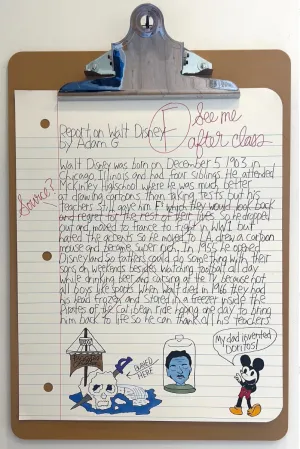 See me
after class
F
Report on Walt Disney
by Adam G
Source?
Walt Disney was born on December 5, 1963 in
Chicago, Illinois and had four siblings. He attended
McKinley Highschool where he was much better
at drawing cartoons than taking tests but his
teachers still gave him F's which they would look back
and regret for the rest of their lives. So he dropped
out and moved to france to fight in WW1 but
hated the accents so he moved to LA, drew a cartoon
mouse and became super rich. In 1955 he opened
Disneyland so fathers could do something with their
sons on weekends besides watching football all day
while drinking beer and cursing at the TV because not
all boys like sports. When Walt died in 1966 they had
his head frozen and stored in a freezer inside the
Pirates of the Caribbean ride hoping one day to bring
him back to life so he can thank all his teachers
BURIED
HERE
My dad invented
Doritos!